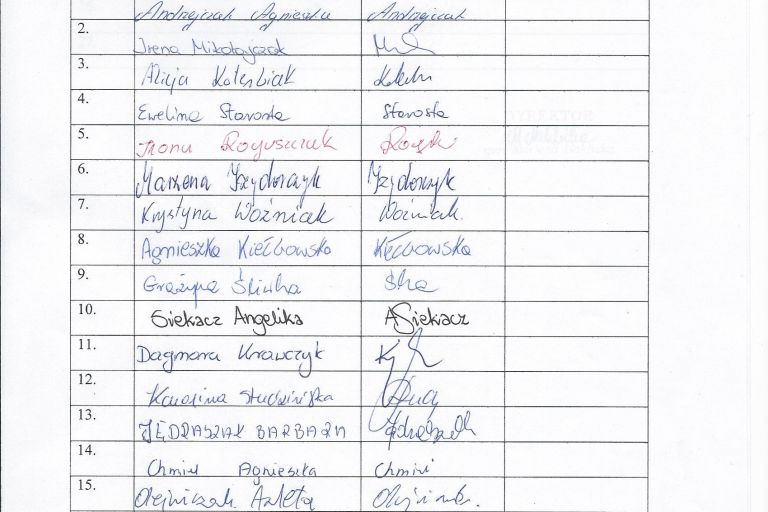 Andrzejczak Agnieszka Andrzejczak
2. Irena Mikołajczak
3. Alicja Kolesbiak
4. Ewelina Starosta Starosta
5. Iwona Roguszczak
6. Marzena Izydorczyk Izydorczyk
7. Krystyna Woźniak Woźniak.
8. Agnieszka Kiełbowska Kiełbowska
9. Grażyna Śliwka
10. Siekacz Angelika ASiekacz
11. Dagmara Krawczyk
12. Karolina Studzińska
13. JĘDRASZAK BARBARA
14. Chmiel Agnieszka Chmiel
15. Olejniczak Arleta